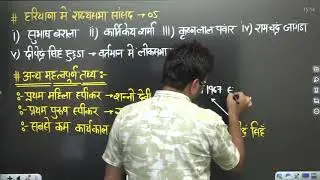 # हरियाणा में राज्यसभा सांसद → 05
i) सुभाष बराला ii) कार्तिकेय शर्मा iii) कृष्णलाल पंवार iv) रामचंद्र जांगड़ा
v) दीपेन्द्र सिंह हुड्डा → वर्तमान में लोकसभा
# अन्य महत्वपूर्ण तथ्य :-
:- प्रथम महिला स्पीकर → शन्नो देवी 1967 ई
:- प्रथम पुरुष स्पीकर →
:- सबसे कम कार्यकाल सिंह